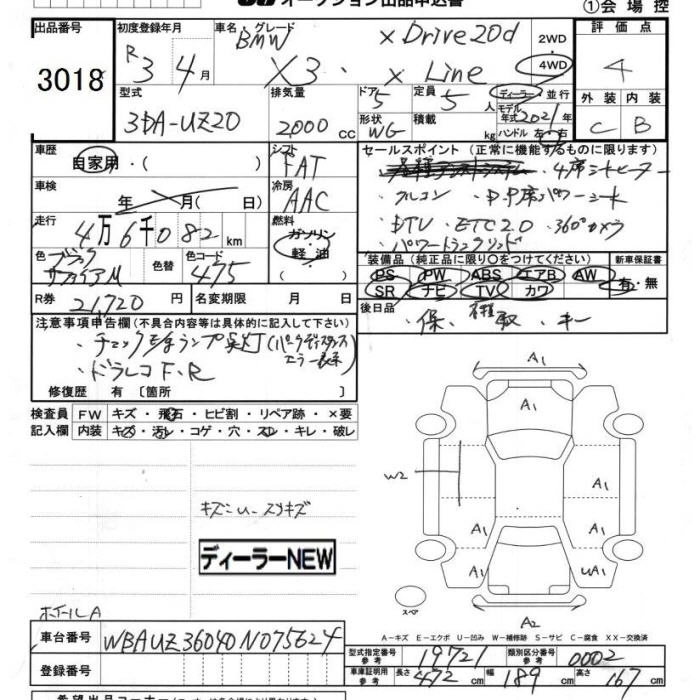 オークション出品申込書
①会場控
出品番号 3018
初度登録年月 R3 4月
車名・グレード BMW X3・ xDrive20d x Line
2WD 4WD
評価点 4
型式 3DA-UZ20
排気量 2000 cc
ドア 5 形状 WG
定員 5人 積載 kg
ディーラー・並行
モデル年式 2021年
ハンドル 左・右
外装 内装
C B
車歴 自家用・( )
シフト FAT
セールスポイント (正常に機能するものに限ります)
・4席シートヒーター
・クルコン ・D.P席パワーシート
・DTV ・ETC2.0 ・360°カメラ
・パワートランクリッド
車検 年 月( 日)
冷房 AAC
走行 4万6千082 km
燃料 ガソリン・軽油 ( )
色 ブラックサファイアM
色替
色コード 475
装備品 (純正品に限り〇をつけてください)
PS PW ABS エアB AW
SR ナビ TV カワ
新車保証書 有・無
R券 21720 円
名変期限 月 日
後日品 ・保、取・キー
注意事項申告欄 (不具合内容等は具体的に記入して下さい)
・ドラレコ F.R
修復歴 有 〔箇所 〕
検査員記入欄
FW キズ・飛石・ヒビ割・リペア跡・×要
内装 キズ・汚レ・コゲ・穴・スレ・キレ・破レ
A1
A1
W2
A1
A1
A1
A1
UA1
A2
スペア
キズ
ディーラーNEW
ホイールA
A－キズ E－エクボ U－凹み W－補修跡 S－サビ C－腐食 XX－交換済
車台番号 WBAUZ36040N075624
型式指定番号 参考 19721
類別区分番号 参考 0002
登録番号
車庫証明用 参考 長さ 472 cm 幅 189 cm 高さ 167 cm
希望出品コーナー